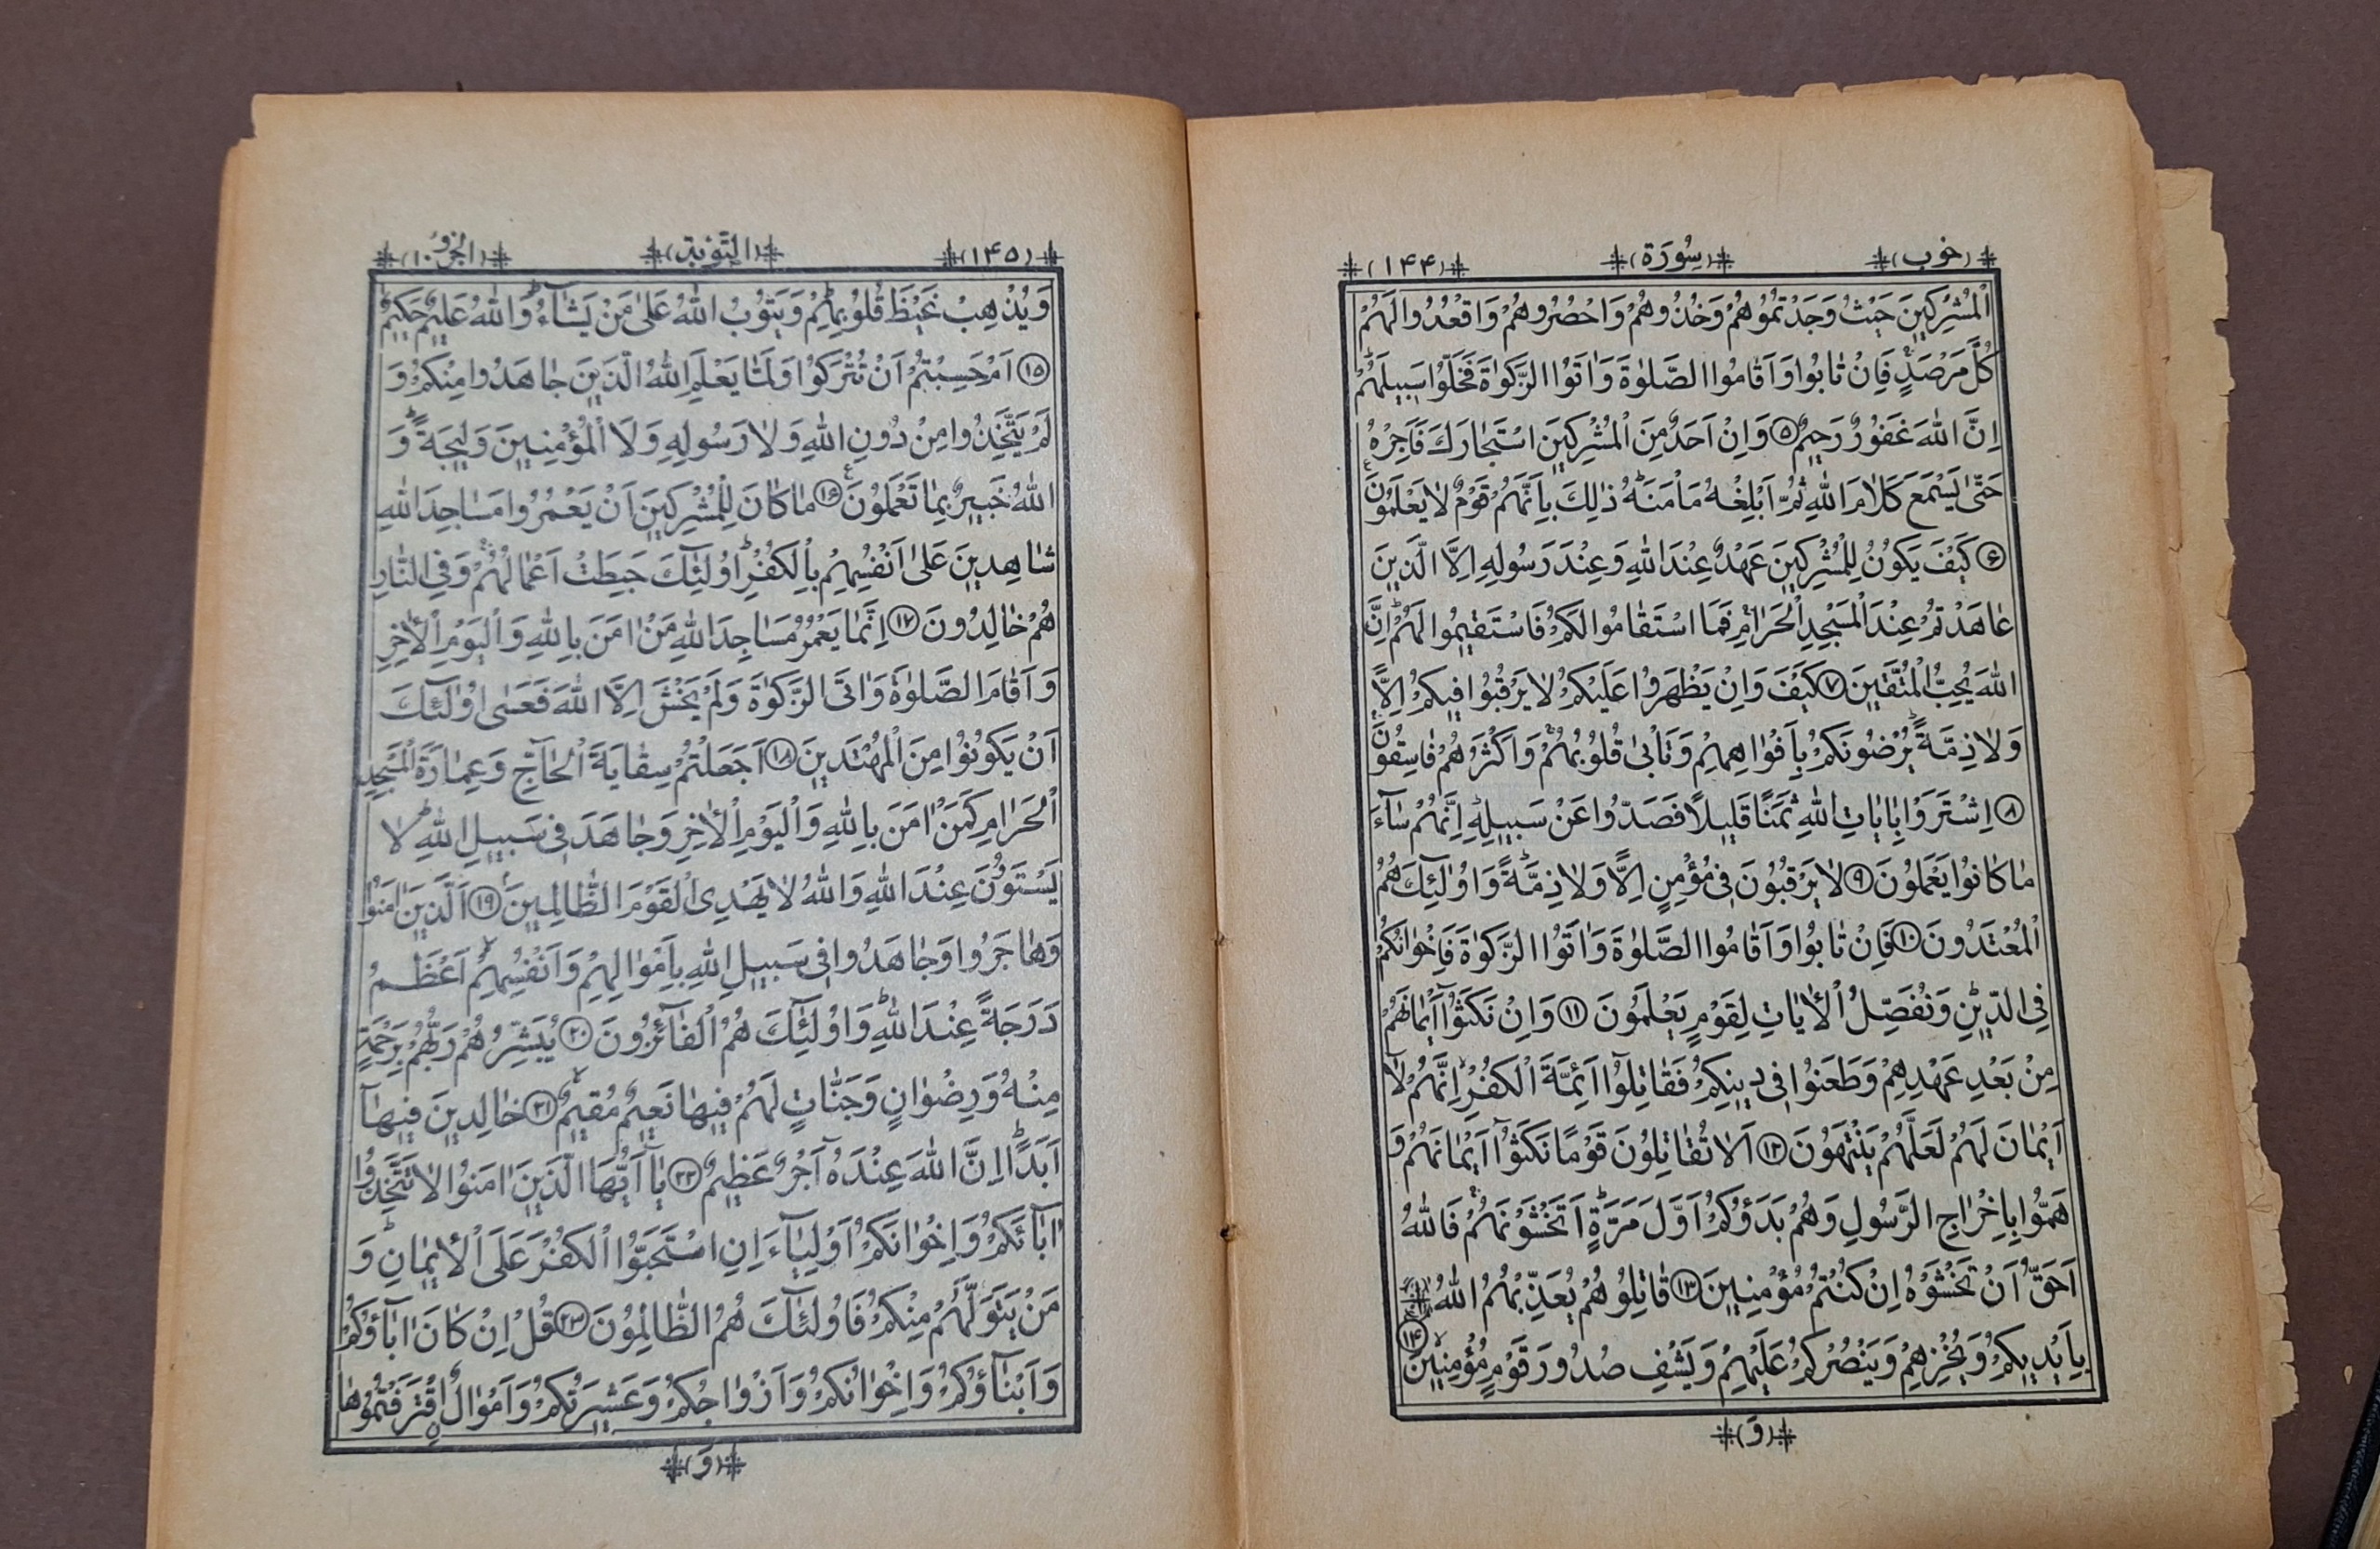 (خوب) (سُورَة) (۱۴۴)
الْمُشْرِكِينَ حَيْثُ وَجَدْتُمُوهُمْ وَخُذُوهُمْ وَاحْصُرُوهُمْ وَاقْعُدُوا لَهُمْ
كُلَّ مَرْصَدٍ فَاِنْ تَابُوا وَاَقَامُوا الصَّلٰوةَ وَاٰتَوُا الزَّكٰوةَ فَخَلُّوا سَبِيلَهُمْ
اِنَّ اللّٰهَ غَفُورٌ رَحِيمٌ ۵ وَاِنْ اَحَدٌ مِنَ الْمُشْرِكِينَ اسْتَجَارَكَ فَاَجِرْهُ
حَتّٰى يَسْمَعَ كَلَامَ اللّٰهِ ثُمَّ اَبْلِغْهُ مَاْمَنَهُ ذٰلِكَ بِاَنَّهُمْ قَوْمٌ لَا يَعْلَمُونَ
۶ كَيْفَ يَكُونُ لِلْمُشْرِكِينَ عَهْدٌ عِنْدَ اللّٰهِ وَعِنْدَ رَسُولِهِ اِلَّا الَّذِينَ
عَاهَدْتُمْ عِنْدَ الْمَسْجِدِ الْحَرَامِ فَمَا اسْتَقَامُوا لَكُمْ فَاسْتَقِيمُوا لَهُمْ اِنَّ
اللّٰهَ يُحِبُّ الْمُتَّقِينَ ۷ كَيْفَ وَاِنْ يَظْهَرُوا عَلَيْكُمْ لَا يَرْقُبُوا فِيكُمْ اِلًّا
وَلَا ذِمَّةً يُرْضُونَكُمْ بِاَفْوَاهِهِمْ وَتَاْبٰى قُلُوبُهُمْ وَاَكْثَرُهُمْ فَاسِقُونَ
۸ اِشْتَرَوْا بِاٰيَاتِ اللّٰهِ ثَمَنًا قَلِيلًا فَصَدُّوا عَنْ سَبِيلِهِ اِنَّهُمْ سَآءَ
مَا كَانُوا يَعْمَلُونَ ۹ لَا يَرْقُبُونَ فِي مُؤْمِنٍ اِلًّا وَلَا ذِمَّةً وَاُولٰٓئِكَ هُمُ
الْمُعْتَدُونَ ۱۰ فَاِنْ تَابُوا وَاَقَامُوا الصَّلٰوةَ وَاٰتَوُا الزَّكٰوةَ فَاِخْوَانُكُمْ
فِي الدِّينِ وَنُفَصِّلُ الْاٰيَاتِ لِقَوْمٍ يَعْلَمُونَ ۱۱ وَاِنْ نَكَثُوٓا اَيْمَانَهُمْ
مِنْ بَعْدِ عَهْدِهِمْ وَطَعَنُوا فِي دِينِكُمْ فَقَاتِلُوٓا اَئِمَّةَ الْكُفْرِ اِنَّهُمْ لَآ
اَيْمَانَ لَهُمْ لَعَلَّهُمْ يَنْتَهُونَ ۱۲ اَلَا تُقَاتِلُونَ قَوْمًا نَكَثُوٓا اَيْمَانَهُمْ وَ
هَمُّوا بِاِخْرَاجِ الرَّسُولِ وَهُمْ بَدَؤُكُمْ اَوَّلَ مَرَّةٍ اَتَخْشَوْنَهُمْ فَاللّٰهُ
اَحَقُّ اَنْ تَخْشَوْهُ اِنْ كُنْتُمْ مُؤْمِنِينَ ۱۳ قَاتِلُوهُمْ يُعَذِّبْهُمُ اللّٰهُ
بِاَيْدِيكُمْ وَيُخْزِهِمْ وَيَنْصُرْكُمْ عَلَيْهِمْ وَيَشْفِ صُدُورَ قَوْمٍ مُؤْمِنِينَ ۱۴
(وَ)
(۱۴۵) (التَّوْبَة) (الجزؤ ۱۰)
وَيُذْهِبْ غَيْظَ قُلُوبِهِمْ وَيَتُوبُ اللّٰهُ عَلٰى مَنْ يَشَآءُ وَاللّٰهُ عَلِيمٌ حَكِيمٌ
۱۵ اَمْ حَسِبْتُمْ اَنْ تُتْرَكُوا وَلَمَّا يَعْلَمِ اللّٰهُ الَّذِينَ جَاهَدُوا مِنْكُمْ وَ
لَمْ يَتَّخِذُوا مِنْ دُونِ اللّٰهِ وَلَا رَسُولِهِ وَلَا الْمُؤْمِنِينَ وَلِيجَةً وَ
اللّٰهُ خَبِيرٌ بِمَا تَعْمَلُونَ ۱۶ مَا كَانَ لِلْمُشْرِكِينَ اَنْ يَعْمُرُوا مَسَاجِدَ اللّٰهِ
شَاهِدِينَ عَلٰى اَنْفُسِهِمْ بِالْكُفْرِ اُولٰٓئِكَ حَبِطَتْ اَعْمَالُهُمْ وَفِي النَّارِ
هُمْ خَالِدُونَ ۱۷ اِنَّمَا يَعْمُرُ مَسَاجِدَ اللّٰهِ مَنْ اٰمَنَ بِاللّٰهِ وَالْيَوْمِ الْاٰخِرِ
وَاَقَامَ الصَّلٰوةَ وَاٰتَى الزَّكٰوةَ وَلَمْ يَخْشَ اِلَّا اللّٰهَ فَعَسٰٓى اُولٰٓئِكَ
اَنْ يَكُونُوا مِنَ الْمُهْتَدِينَ ۱۸ اَجَعَلْتُمْ سِقَايَةَ الْحَآجِّ وَعِمَارَةَ الْمَسْجِدِ
الْحَرَامِ كَمَنْ اٰمَنَ بِاللّٰهِ وَالْيَوْمِ الْاٰخِرِ وَجَاهَدَ فِي سَبِيلِ اللّٰهِ لَا
يَسْتَوُونَ عِنْدَ اللّٰهِ وَاللّٰهُ لَا يَهْدِي الْقَوْمَ الظَّالِمِينَ ۱۹ اَلَّذِينَ اٰمَنُوا
وَهَاجَرُوا وَجَاهَدُوا فِي سَبِيلِ اللّٰهِ بِاَمْوَالِهِمْ وَاَنْفُسِهِمْ اَعْظَمُ
دَرَجَةً عِنْدَ اللّٰهِ وَاُولٰٓئِكَ هُمُ الْفَآئِزُونَ ۲۰ يُبَشِّرُهُمْ رَبُّهُمْ بِرَحْمَةٍ
مِنْهُ وَرِضْوَانٍ وَجَنَّاتٍ لَهُمْ فِيهَا نَعِيمٌ مُقِيمٌ ۲۱ خَالِدِينَ فِيهَآ
اَبَدًا اِنَّ اللّٰهَ عِنْدَهُ اَجْرٌ عَظِيمٌ ۲۲ يَآ اَيُّهَا الَّذِينَ اٰمَنُوا لَا تَتَّخِذُوٓا
اٰبَآئَكُمْ وَاِخْوَانَكُمْ اَوْلِيَآءَ اِنِ اسْتَحَبُّوا الْكُفْرَ عَلَى الْاِيمَانِ وَ
مَنْ يَتَوَلَّهُمْ مِنْكُمْ فَاُولٰٓئِكَ هُمُ الظَّالِمُونَ ۲۳ قُلْ اِنْ كَانَ اٰبَآؤُكُمْ
وَاَبْنَآؤُكُمْ وَاِخْوَانُكُمْ وَاَزْوَاجُكُمْ وَعَشِيرَتُكُمْ وَاَمْوَالٌ اقْتَرَفْتُمُوهَا
(وَ)